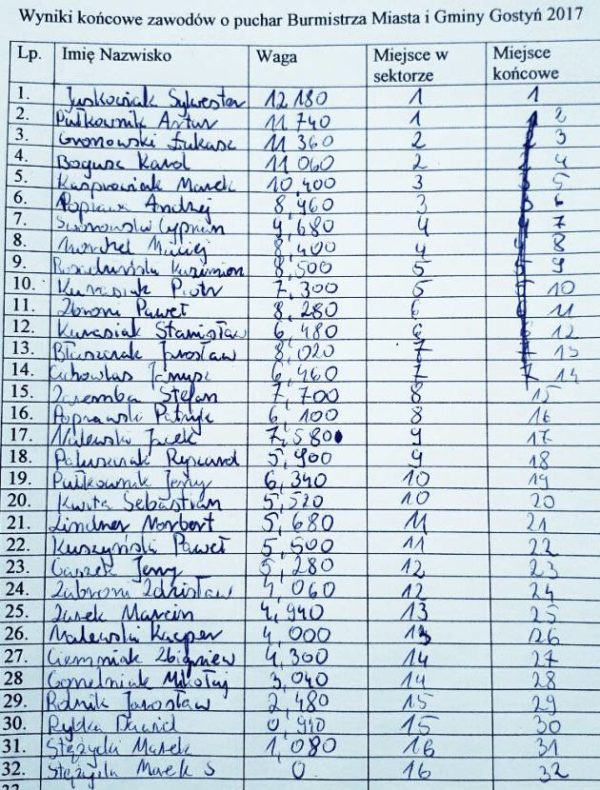 Wyniki końcowe zawodów o puchar Burmistrza Miasta i Gminy Gostyń 2017
Lp. Imię Nazwisko Waga Miejsce w sektorze Miejsce końcowe
1. Juskowiak Sylwester 12 180 1 1
2. Pułkownik Artur 11 740 1 2
3. Gronowski Łukasz 11 360 2 3
4. Bogusz Karol 11 060 2 4
5. Kasprowiak Marek 10,400 3 5
6. Poprawa Andrzej 8,960 3 6
7. Cyprian 4,680 4 7
8. Maciej 8,400 4 8
9. Kazimierz 8,500 5 9
10. Kurasiak Piotr 7,300 5 10
11. Zbroni Paweł 8,280 6 11
12. Kurasiak Stanisław 6,480 6 12
13. Błaszczak Jarosław 8,020 7 13
14. Cichowlas Janusz 6,460 7 14
15. Zaremba Stefan 7,700 8 15
16. Poprawski Patryk 6 100 8 16
17. Malewski Jacek 7,580 9 17
18. Paluszczak Ryszard 5,900 9 18
19. Pułkownik Jerzy 6,340 10 19
20. Kwita Sebastian 5,520 10 20
21. Lindner Norbert 5,680 11 21
22. Kuszyński Paweł 5,500 11 22
23. Jerzy 5,280 12 23
24. Zabroni Zdzisław 4,060 12 24
25. Jarek Marcin 4,940 13 25
26. Malewski Kacper 4,000 13 26
27. Ciemniak Zbigniew 4,300 14 27
28 Gomelniak Mikołaj 3,040 14 28
29. Rolnik Jarosław 2,480 15 29
30. Rybka Dawid 0,910 15 30
31. Stężycki Marek 1,080 16 31
32. Stężycki Marek S 0 16 32